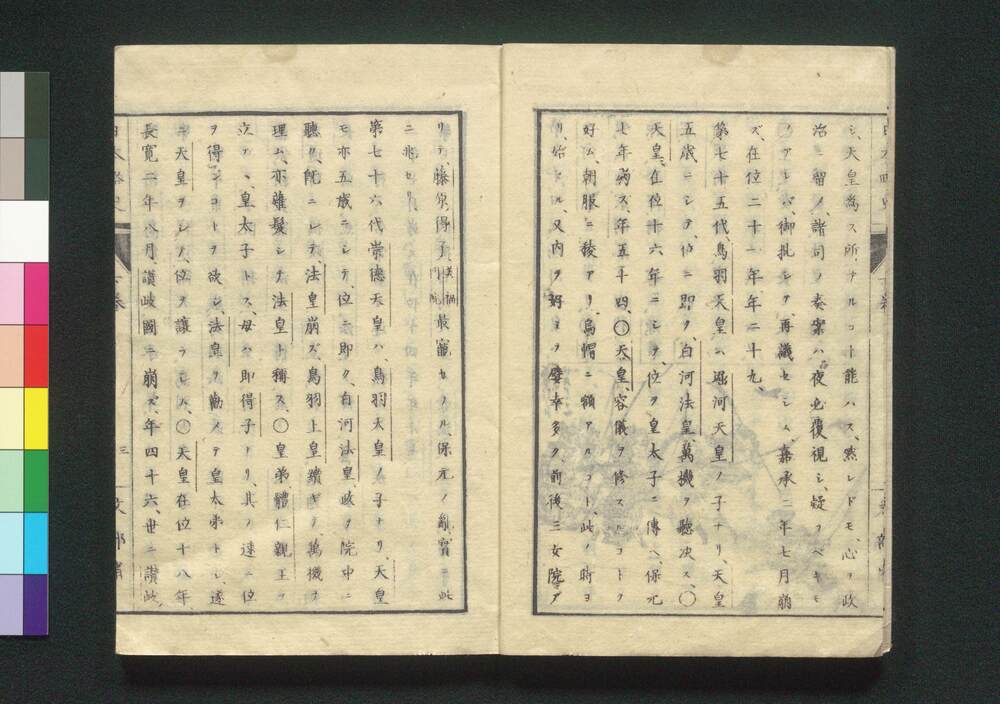 シ、天皇為ス所ナルコト能ハス、然レドモ、心ヲ政
治ニ留メ、諸司ノ奏案ハ、夜必復視シ、疑フベキモ
ノアレバ、御批シテ、再議セシム、嘉承二年七月崩
ズ、在位二十一年年二十九、
第七十五代鳥羽天皇ハ、堀河天皇ノ子ナリ、天皇
五歳ニシテ、位ニ即ク、白河法皇、萬機ヲ聴決ス、〇
天皇、在位十六年ニシテ、位ヲ皇太子ニ傳ヘ、保元
七年病ス、年五十四、〇天皇、容儀ヲ修スルコトヲ
好ム、朝服ニ稜アリ、烏帽ニ額アルコト、此ノ時ヨ
リ、始レル、又内ヲ好ミテ嬖幸多ク、前後三女院ア
リテ、藤原得子美福門院最寵セラル、保元ノ亂實ニ此
ニ兆セリ、
第七十六代崇徳天皇ハ、鳥羽天皇ノ子ナリ、天皇
モ亦五歳ニシテ、位ニ即ク、白河法皇政ヲ院中ニ
聴ク、既ニシテ、法皇崩ズ、鳥羽上皇續ギテ、萬機ヲ
理ム、亦薙髮シテ法皇ト稱ス、〇皇弟體仁親王ヲ
立テヽ、皇太子トス、母ハ、即得子ナリ、其ノ速ニ位
ヲ得ンコトヲ欲シ、法皇ヲ勸メテ皇太弟トシ、遂
ニ天皇ヲシテ、位ヲ讓ラシム、〇天皇在位十八年
長寛二年八月、讃岐國ニ崩ズ、年四十六、世ニ讃岐
三
文部省